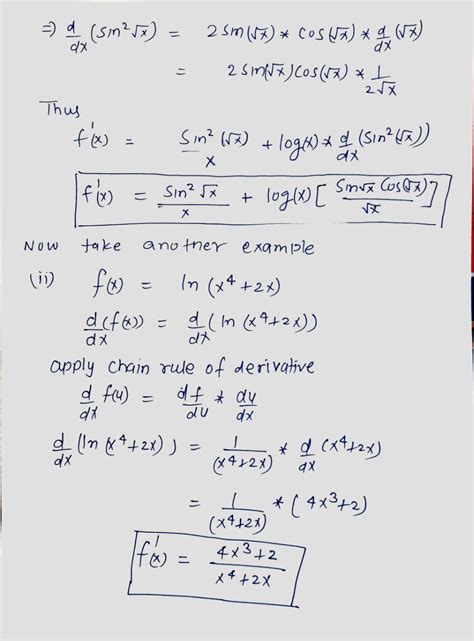 ⇒ d/dx (sin²√x) = 2 sin(√x) * cos(√x) * d/dx (√x)
= 2 sin(√x) cos(√x) * 1/2√x
Thus
f'(x) = sin²(√x)/x + log(x) * d/dx (sin²(√x))
f'(x) = sin²√x/x + log(x) [ sin√x cos(√x)/√x ]
Now take another example
(ii) f(x) = ln (x⁴+2x)
d/dx (f(x)) = d/dx (ln (x⁴+2x))
apply chain rule of derivative
d/dx f(u) = df/du * du/dx
d/dx (ln (x⁴+2x)) = 1/(x⁴+2x) * d/dx (x⁴+2x)
= 1/(x⁴+2x) * (4x³+2)
f'(x) = 4x³+2/x⁴+2x